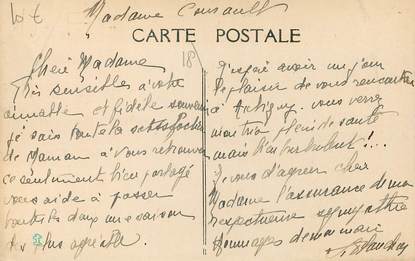 10 t
Madame Consault
CARTE POSTALE
18
Cheré Madame
Très sensibles à votre
aimable et fidèle souvenir
je sais toute la satisfaction
de Maman à vous retrouver
ce sentiment bien partagé
vous aide à passer
toutes deux une saison
des plus agréable.
J'espère avoir un jour
le plaisir de vous rencontrer
à Artigny. vous verrez
mon trio plein de santé
mais turbulent!...
Je vous d'agréer cher
Madame l'assurance de ma
respectueuse sympathie
Hommages de mon mari